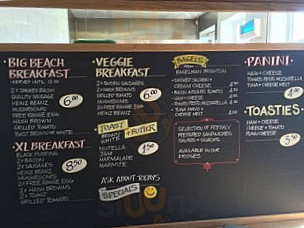 BIG BEACH
BREAKFAST
SERVED UNTIL 12.00
2 x SMOKED BACON
QUALITY SAUSAGE
HEINZ BEANZ
MUSHROOMS
FREE RANGE EGG
HASH BROWN
GRILLED TOMATO
TOAST BROWN OR WHITE
6.00
XL BREAKFAST
BLACK PUDDING
2 x BACON
2 x SAUSAGE
HEINZ BEANZ
MUSHROOMS
2 x FREE RANGE EGG
2 x HASH BROWNS
2 x TOAST
GRILLED TOMATO
8.50
VEGGIE
BREAKFAST
2 x QUORN SAUSAGES
2 x HASH BROWNS
2 x TOAST
GRILLED TOMATO
HEINZ BEANZ
MUSHROOMS
2 x FREE RANGE EGG
6.00
TOAST + BUTTER
BROWN
WHITE
NUTELLA
JAM
MARMALADE
MARMITE
1.50
ASK ABOUT TODAYS
SPECIALS
BAGELS
FROM
BAGELMAN BRIGHTON
SMOKED SALMON +
CREAM CHEESE
HAM + CHEESE
SELECTION OF FRESHLY
PREPARED SANDWICHES
SALADS + SAVOURIES
AVAILABLE IN OUR
FRIDGES
PANINI
HAM + CHEESE
TOMATO PESTO MOZZARELLA
TUNA MELT
4.00
TOASTIES
HAM + CHEESE
CHEESE + TOMATO
PLAIN CHEESE